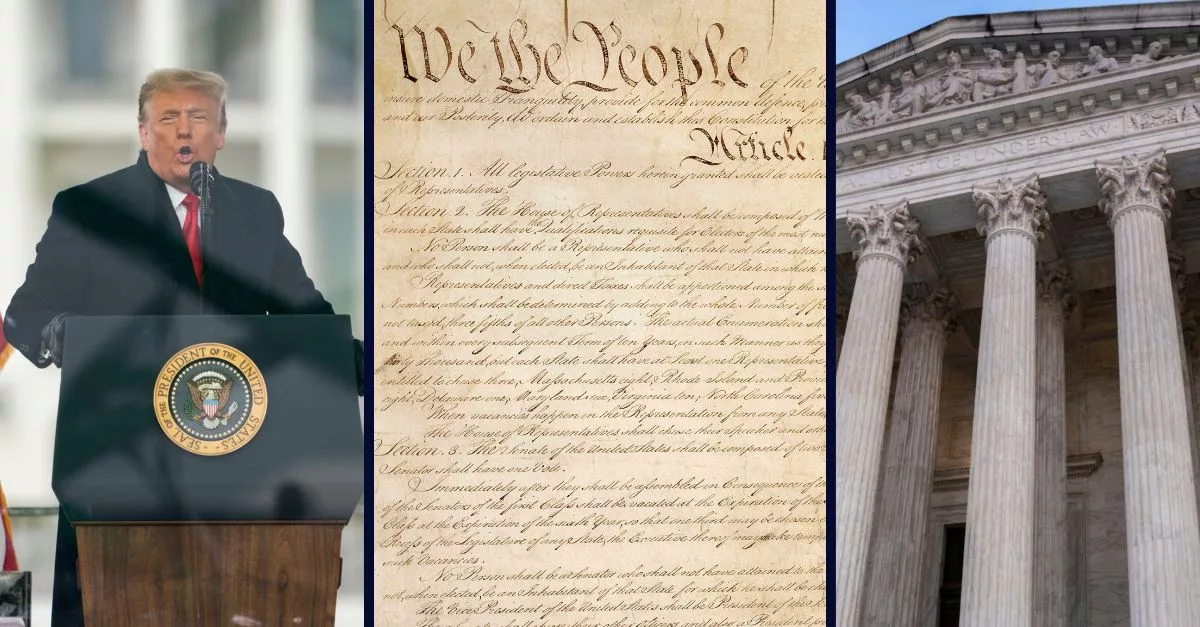 SEAL OF THE PRESIDENT OF THE UNITED STATES
We the People
of the
insure domestic Tranquility, provide for the common defence,
and our Posterity, do ordain and establish this Constitution for
Article.
Section. 1. All legislative Powers herein granted shall be
of Representatives.
Section. 2. The House of Representatives shall be composed of
in each State shall have the Qualifications requisite for Electors of the most
No Person shall be a Representative who shall not have
and who shall not, when elected, be an Inhabitant of that State in which
Representatives and direct Taxes shall be apportioned among the
Numbers, which shall be determined by adding to the whole Number of
not taxed, three fifths of all other Persons. The actual Enumeration
and within every subsequent Term of ten Years, in such Manner as they
thirty Thousand, but each State shall have at Least one Representative
entitled to chuse three, Massachusetts eight, Rhode Island and
eight, Delaware one, Maryland six, Virginia ten, North Carolina
When vacancies happen in the Representation from any State,
The House of Representatives shall chuse their Speaker and
Section. 3. The Senate of the United States shall be composed of two
Senator shall have one Vote.
Immediately after they shall be assembled in Consequence of
of the Senators of the first Class shall be vacated at the Expiration of the
Class at the Expiration of the sixth Year, so that one third may be chosen
Recess of the Legislature of any State, the Executive thereof may make
such Vacancies.
No Person shall be a Senator who shall not have attained to the
not, when elected, be an Inhabitant of that State for which he shall be
The Vice President of the United States shall be President of the
The Senate shall chuse their other Officers, and also a President
JUSTICE UNDER LAW